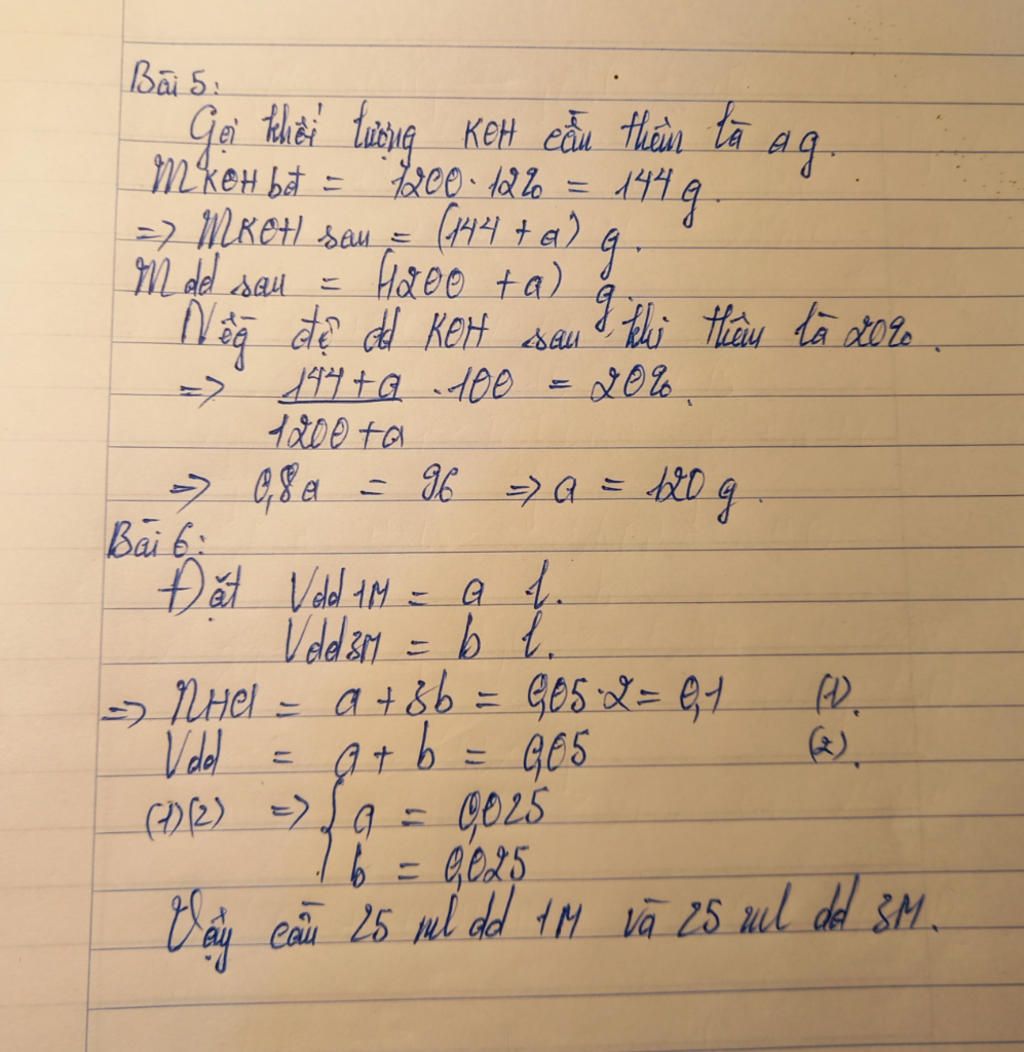 Bài 5:
Gọi khối lượng KOH cần thêm là a g.
mKOH bđ = 1200 . 12% = 144 g.
=> mKOH sau = (144 + a) g.
m dd sau = (1200 + a) g.
Nồng độ dd KOH sau khi thêm là 20%.
=> 144 + a / 1200 + a . 100 = 20%.
=> 0,8a = 96 => a = 120 g.
Bài 6:
Đặt Vdd 1M = a l.
Vdd 3M = b l.
=> nHCl = a + 3b = 0,05 . 2 = 0,1 (1).
Vdd = a + b = 0,05 (2).
(1)(2) => { a = 0,025
b = 0,025
Vậy cần 25 ml dd 1M và 25 ml dd 3M.